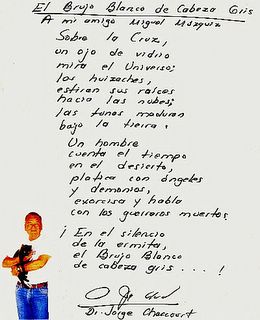 El Brujo Blanco de Cabeza Gris
A mi amigo Miguel Márquiz
Sobre la Cruz,
un ojo de vidrio
mira el Universo;
los huizaches,
estiran sus raíces
hacia las nubes;
las tunas maduran
bajo la tierra.
Un hombre
cuenta el tiempo
en el desierto,
platica con ángeles
y demonios,
exorcisa y habla
con los guerreros muertos
¡ En el silencio
de la ermita,
el Brujo Blanco
de cabeza gris . . . . !
Dr. Jorge Chaccourt